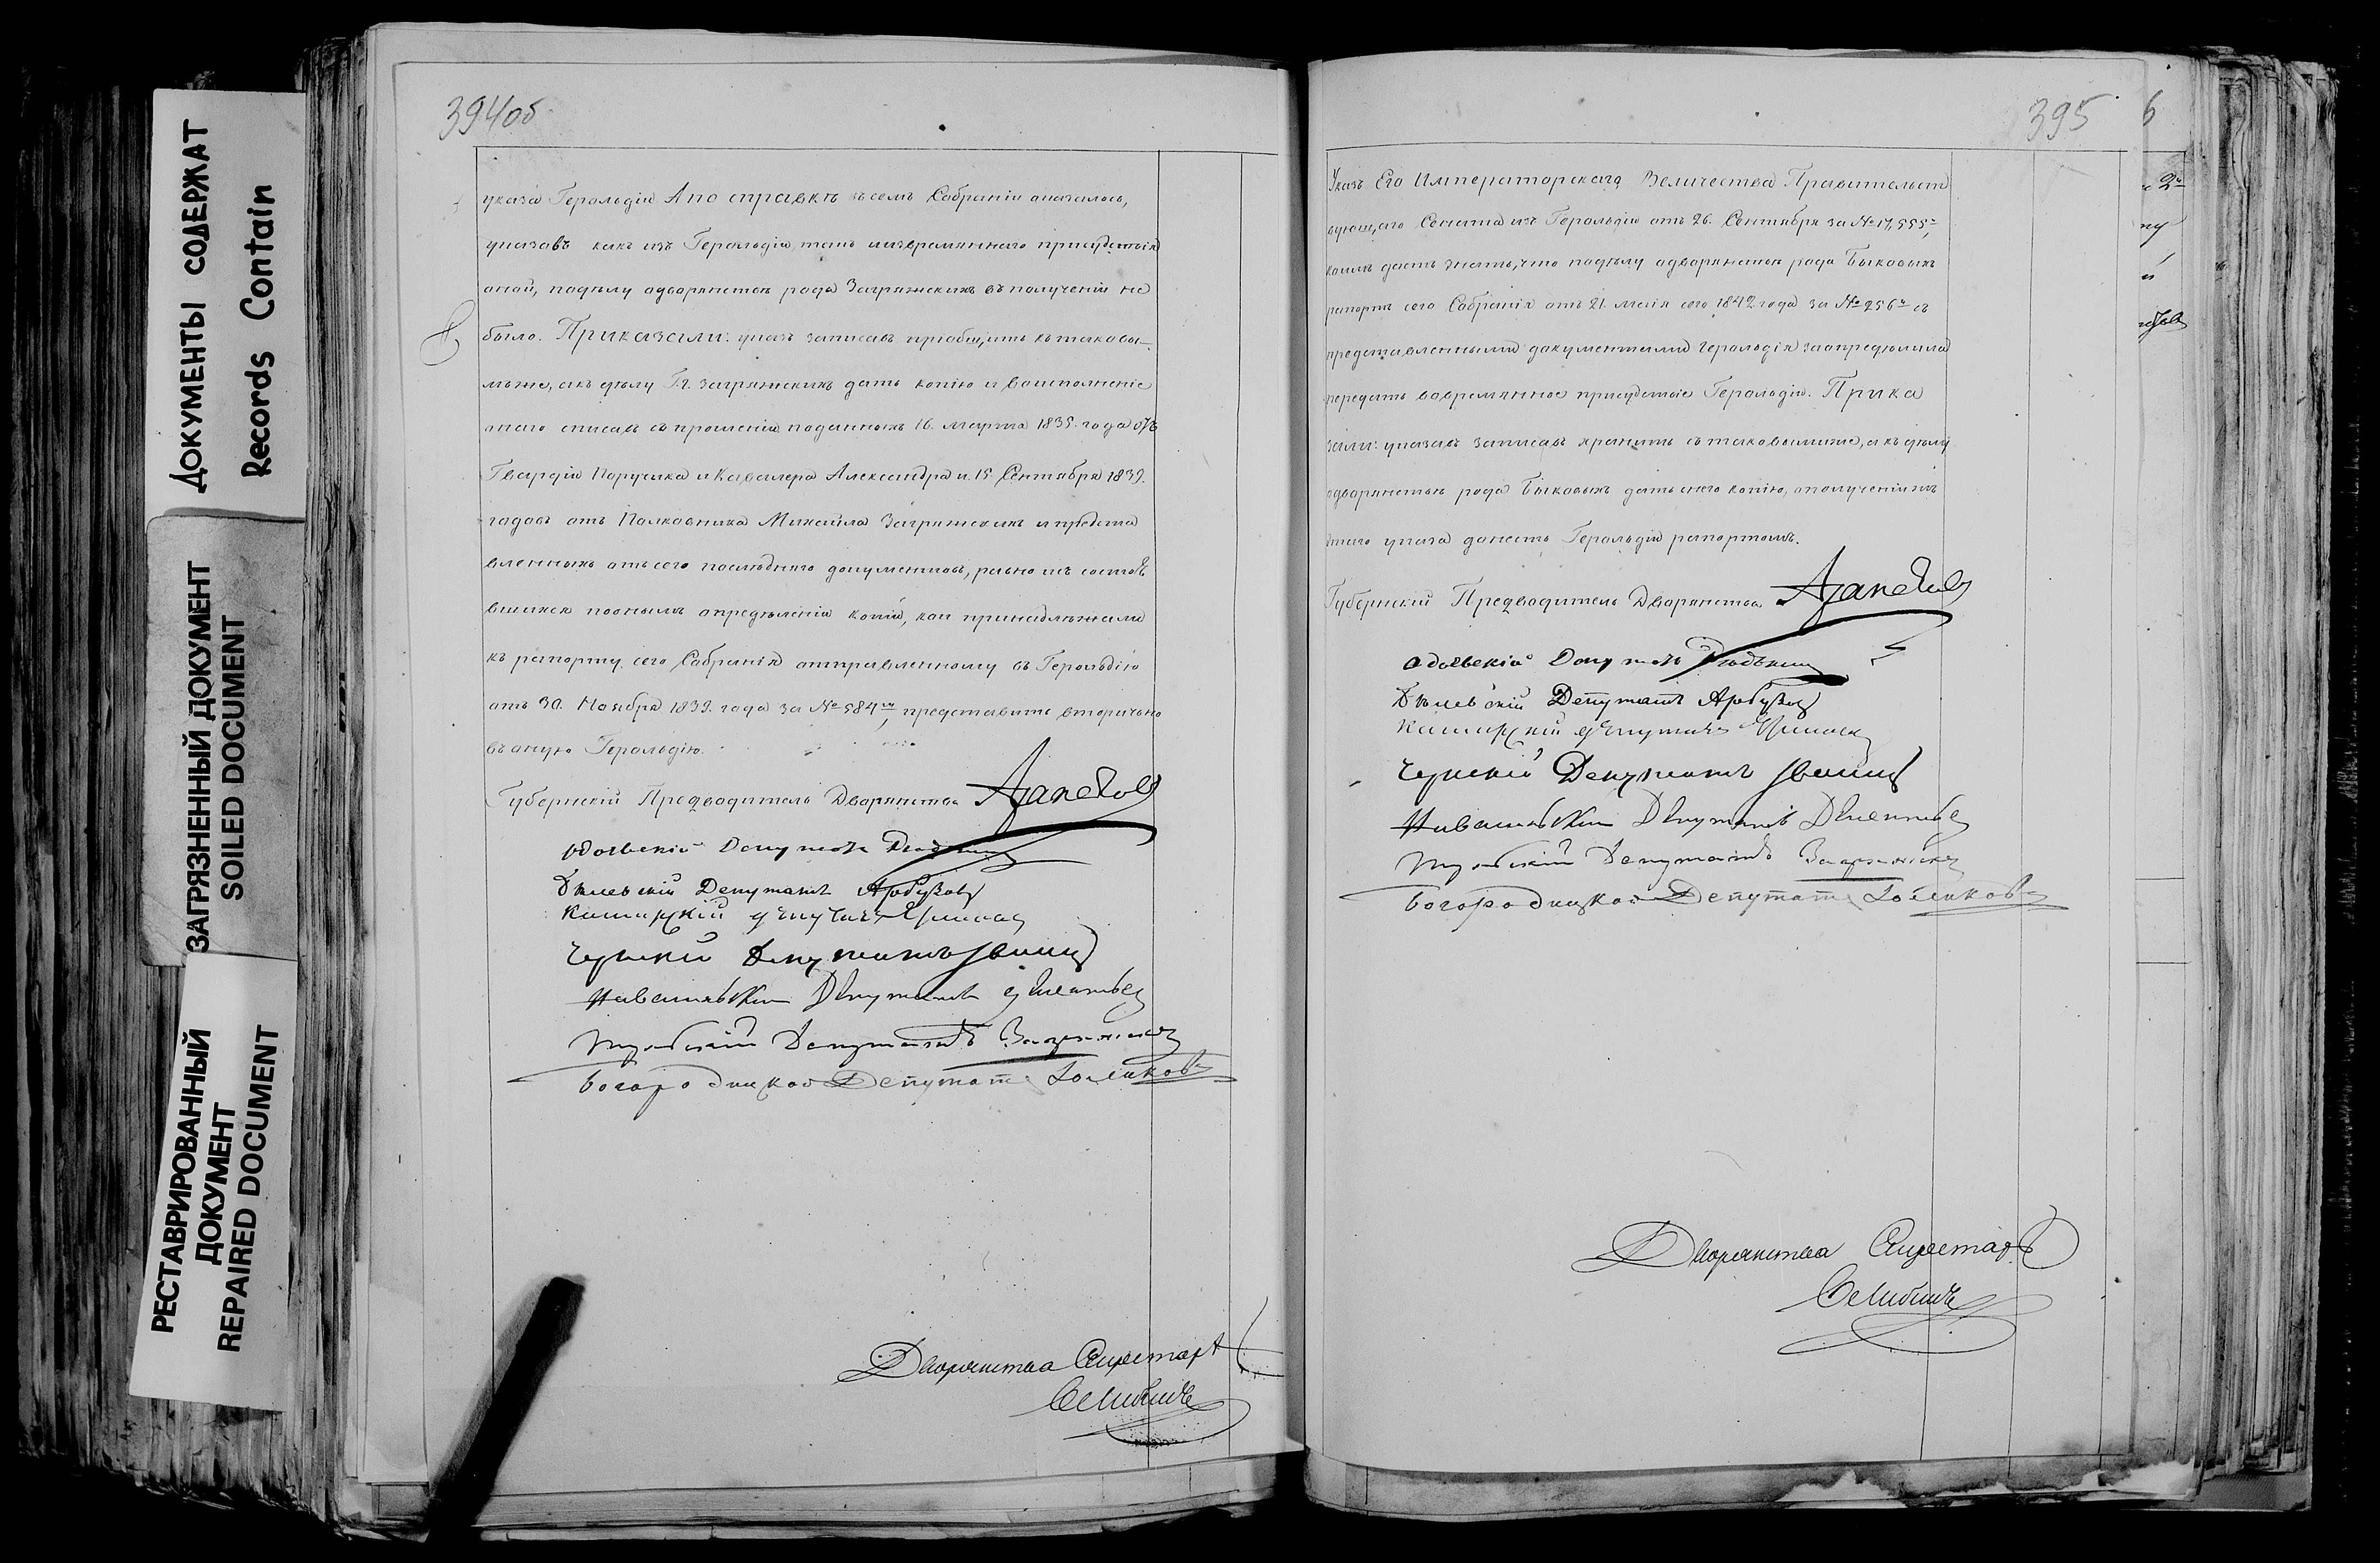 ДОКУМЕНТЫ СОДЕРЖАТ
Records Contain
ЗАГРЯЗНЕННЫЙ ДОКУМЕНТ
SOILED DOCUMENT
РЕСТАВРИРОВАННЫЙ
ДОКУМЕНТ
REPAIRED DOCUMENT
394об
указа Герольдіи А по справкѣ въ семъ Собраніи оказалось,
указовъ какъ изъ Герольдіи, такъ и изъ временнаго присудствія
оной, по дѣлу о дворянствѣ рода Загряжскихъ въ полученіи не
было. Приказали: указъ записавъ пріобщить къ таковы-
мъ же, а къ дѣлу Г.г. Загряжскихъ дать копію и во исполненіе
онаго списавъ съ прошеній поданныхъ 16. Марта 1835. года отъ
Гвардіи Поручика и Кавалера Александра и 15 Сентября 1839.
годовъ отъ Полковника Михайла Загряжскихъ и предста
вленныхъ отъ сего послѣдняго документовъ, равно изъ состояв
шихся по онымъ опредѣленіи копіи, кои принадлежали
къ рапорту сего Собранія отправленному въ Герольдію
отъ 30. Ноября 1839. года за № 584м, представить вторично
въ оную Герольдію.
Губернскій Предводитель Дворянства
Одоевскій Депутатъ
Бѣлевскій Депутатъ Арбузовъ
Каширскій Депутатъ
Чернскій Депутатъ
Депутатъ
Тульскій Депутатъ Загряжской
Богородицкой Депутатъ Голиковъ
Дворянства Секретарь
395
Указъ Его Императорскаго Величества Правительст
вующаго Сената изъ Герольдіи отъ 26. Сентября за № 17,555м,
коимъ даетъ знать, что по дѣлу о дворянствѣ рода Быковыхъ
рапортъ сего Собранія отъ 21. Маія сего 1842 года за № 256м съ
представленными документами Герольдія заопредѣлила
передать во временное присудствіе Герольдіи. Прика
зали: указъ записавъ хранить съ таковыми же, а къ дѣлу
о дворянствѣ рода Быковыхъ дать съ него копію, о полученіи жъ
этаго указа донесть Герольдіи рапортомъ.
Губернскій Предводитель Дворянства
Одоевскій Депутатъ
Бѣлевскій Депутатъ Арбузовъ
Каширскій Депутатъ
Чернскій Депутатъ
Депутатъ
Тульскій Депутатъ Загряжской
Богородицкой Депутатъ Голиковъ
Дворянства Секретарь
6